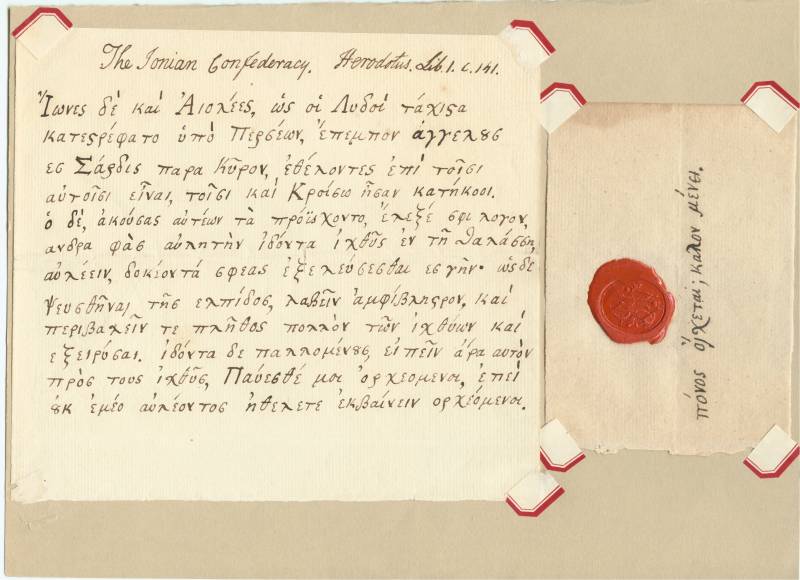 The Ionian Confederacy. Herodotus. Lib. 1. c. 141.
Ἴωνες δὲ καὶ Αἰολέες, ὡς οἱ Λυδοὶ τάχιϛα
κατεϛρέφατο ὑπὸ Περσέων, ἔπεμπον ἀγγελȣς
ες Σάρδις παρα Κῦρον, ἐθέλοντες ἐπὶ τοῖσι
αὐτοῖσι εἶναι, τοῖσι καὶ Κροίσω ἦσαν κατήκοοι.
ὁ δὲ, ἀκούσας αὐτέων τὰ πρόϊσχοντο, ἔλεξέ σφι λογον,
ανδρα φὰς αυλητὴν ἰδόντα ἰχθῦς ἐν τῇ θαλάσσῃ,
αὐλέειν, δοκέοντά σφεας ἐξελεύσεσθαι ες γῆν· ὡς δε
ψευσθῆναι τῆς ελπίδος, λαβεῖν ἀμφίβληϛρον, καὶ
περιβαλεῖν τε πλῆθος πολλὸν τῶν ἰχθύων καὶ
εξειρύσαι. ἰδόντα δε παλλομένȣς, εἰπεῖν ἄρα αυτὸν
πρὸς τους ἰχθῦς, Παύεσθέ μοι ὀρχεόμενοι, ἐπεὶ
ȣκ ἐμέο αὐλέοντος ἠθελετε ἐκβαίνειν ορχεόμενοι.
πόνος οἴχεται; καλον μένει.